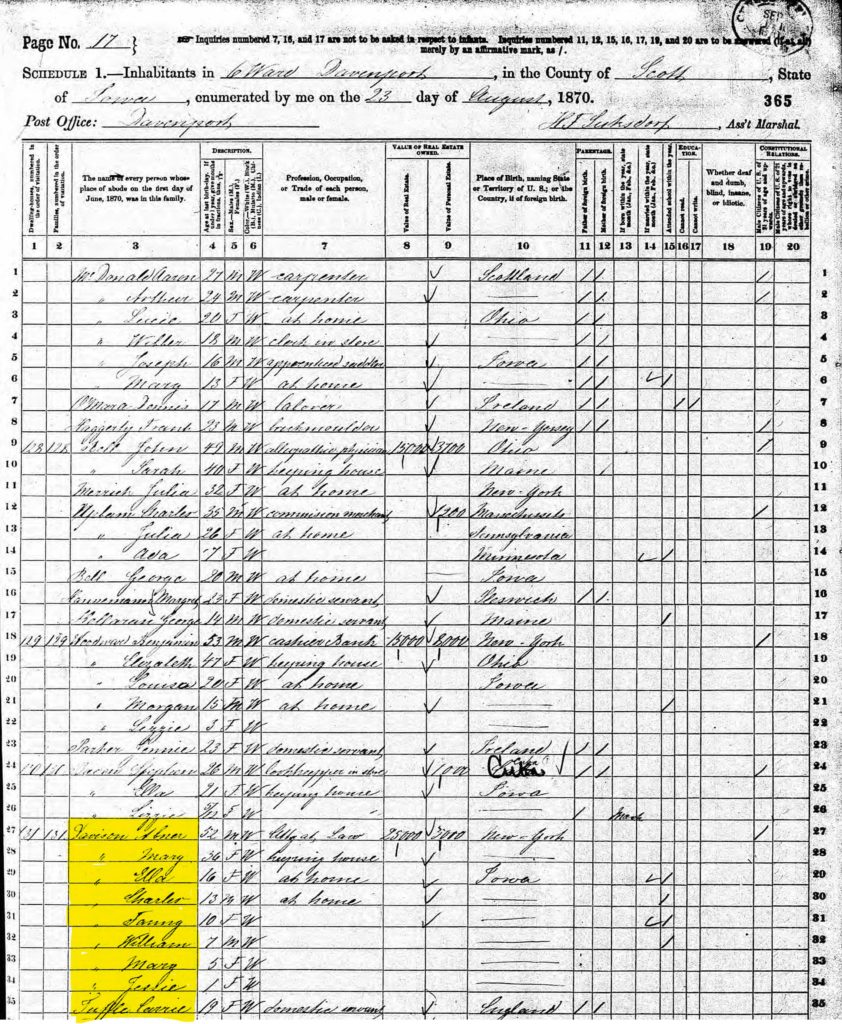 Page No. 17 } Inquiries numbered 7, 16, and 17 are not to be asked in respect to infants. Inquiries numbered 11, 12, 15, 16, 17, 19, and 20 are to be answered (if at all)
merely by an affirmative mark, as /.
SCHEDULE 1.—Inhabitants in 6 Ward Davenport, in the County of Scott, State
of Iowa, enumerated by me on the 23 day of August, 1870. 365
Post Office: Davenport Ass't Marshal.
DESCRIPTION. VALUE OF REAL ESTATE OWNED. PARENTAGE. EDUCATION. CONSTITUTIONAL RELATIONS.
Dwelling-houses, numbered in the order of visitation.
Families, numbered in the order of visitation.
The name of every person whose place of abode on the first day of June, 1870, was in this family.
Sex.—Males (M.), Females (F.)
Profession, Occupation, or Trade of each person, male or female.
Value of Real Estate.
Value of Personal Estate.
Place of Birth, naming State or Territory of U. S.; or the Country, if of foreign birth.
Father of foreign birth.
Mother of foreign birth.
Attended school within the year.
Cannot read.
Cannot write.
Whether deaf and dumb, blind, insane, or idiotic.
1 2 3 4 5 6 7 8 9 10 11 12 13 14 15 16 17 18 19 20
1 McDonald Aaron 27 M W carpenter Scottland / / / 1
2 " Arthur 24 M W carpenter — / / / 2
3 " Lucie 20 F W at home Ohio / / 3
4 " Willer 18 M W clerk in store — / / 4
5 " Joseph 16 M W apprenticed saddler Iowa / / 5
6 " Mary 13 F W at home — / / / 6
7 O'Mara Dennis 17 M W laborer Ireland / / / / 7
8 Haggerty Frank 23 M W brickmoulder New-Jersey / / / 8
9 128 128 John 49 M W physician 15000 3700 Ohio / 9
10 " Sarah 40 F W keeping house Maine 10
11 Merrich Julia 32 F W at home New-York 11
12 Upham Charles 35 M W commission merchant 1200 Massachusets / 12
13 " Julia 26 F W at home Pennsylvania 13
14 " Ada 7 F W Minnesota / 14
15 Bell George 20 M W at home Iowa 15
16 Hannemann Margret 23 F W domestic servant / / 16
17 George 14 M W domestic servant Maine / 17
18 129 129 Woodward Benjamin 53 M W cashier Bank 15000 8000 New-York / 18
19 " Elizabeth 47 F W keeping house Ohio 19
20 " Louisa 20 F W at home Iowa 20
21 " Morgan 15 M W at home — / 21
22 " Lizzie 3 F W — 22
23 Parker Jennie 23 F W domestic servant Ireland / / 23
24 Stephen 26 M W bookkeeper in store 1000 Cuba / / / 24
25 " Ella 21 F W keeping house Iowa 25
26 " Lizzie F W — / March 26
27 131 131 Davison Abner 52 M W Att at Law 25000 5000 New-York / 27
28 " Mary 36 F W keeping house — 28
29 " Ella 16 F W at home Iowa / 29
30 " Charles 13 M W at home — / 30
31 " Fanny 10 F W — / 31
32 " William 7 M W — / 32
33 " Mary 5 F W — 33
34 " Jessie 1 F W — 34
35 Carrie 19 F W domestic servant England / / 35